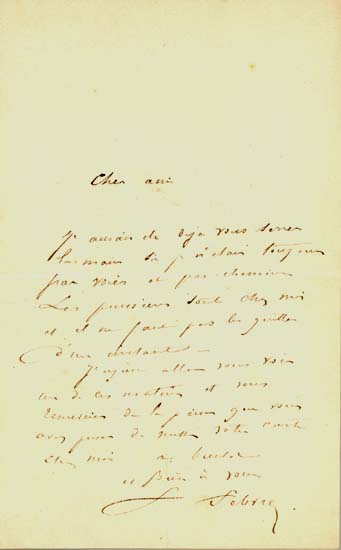 Cher ami
J'aurais de déjà vous serrer
la main si je n'étais toujours
par voies et par chemins
Les                 sont chez moi
et il ne faut pas les quitter
d'un instant —
J'espère aller vous voir
un de ces matins et vous
remercier de la peine que vous
avez prise de mettre votre carte
chez moi a bientot
et Bien à vous
Febvre